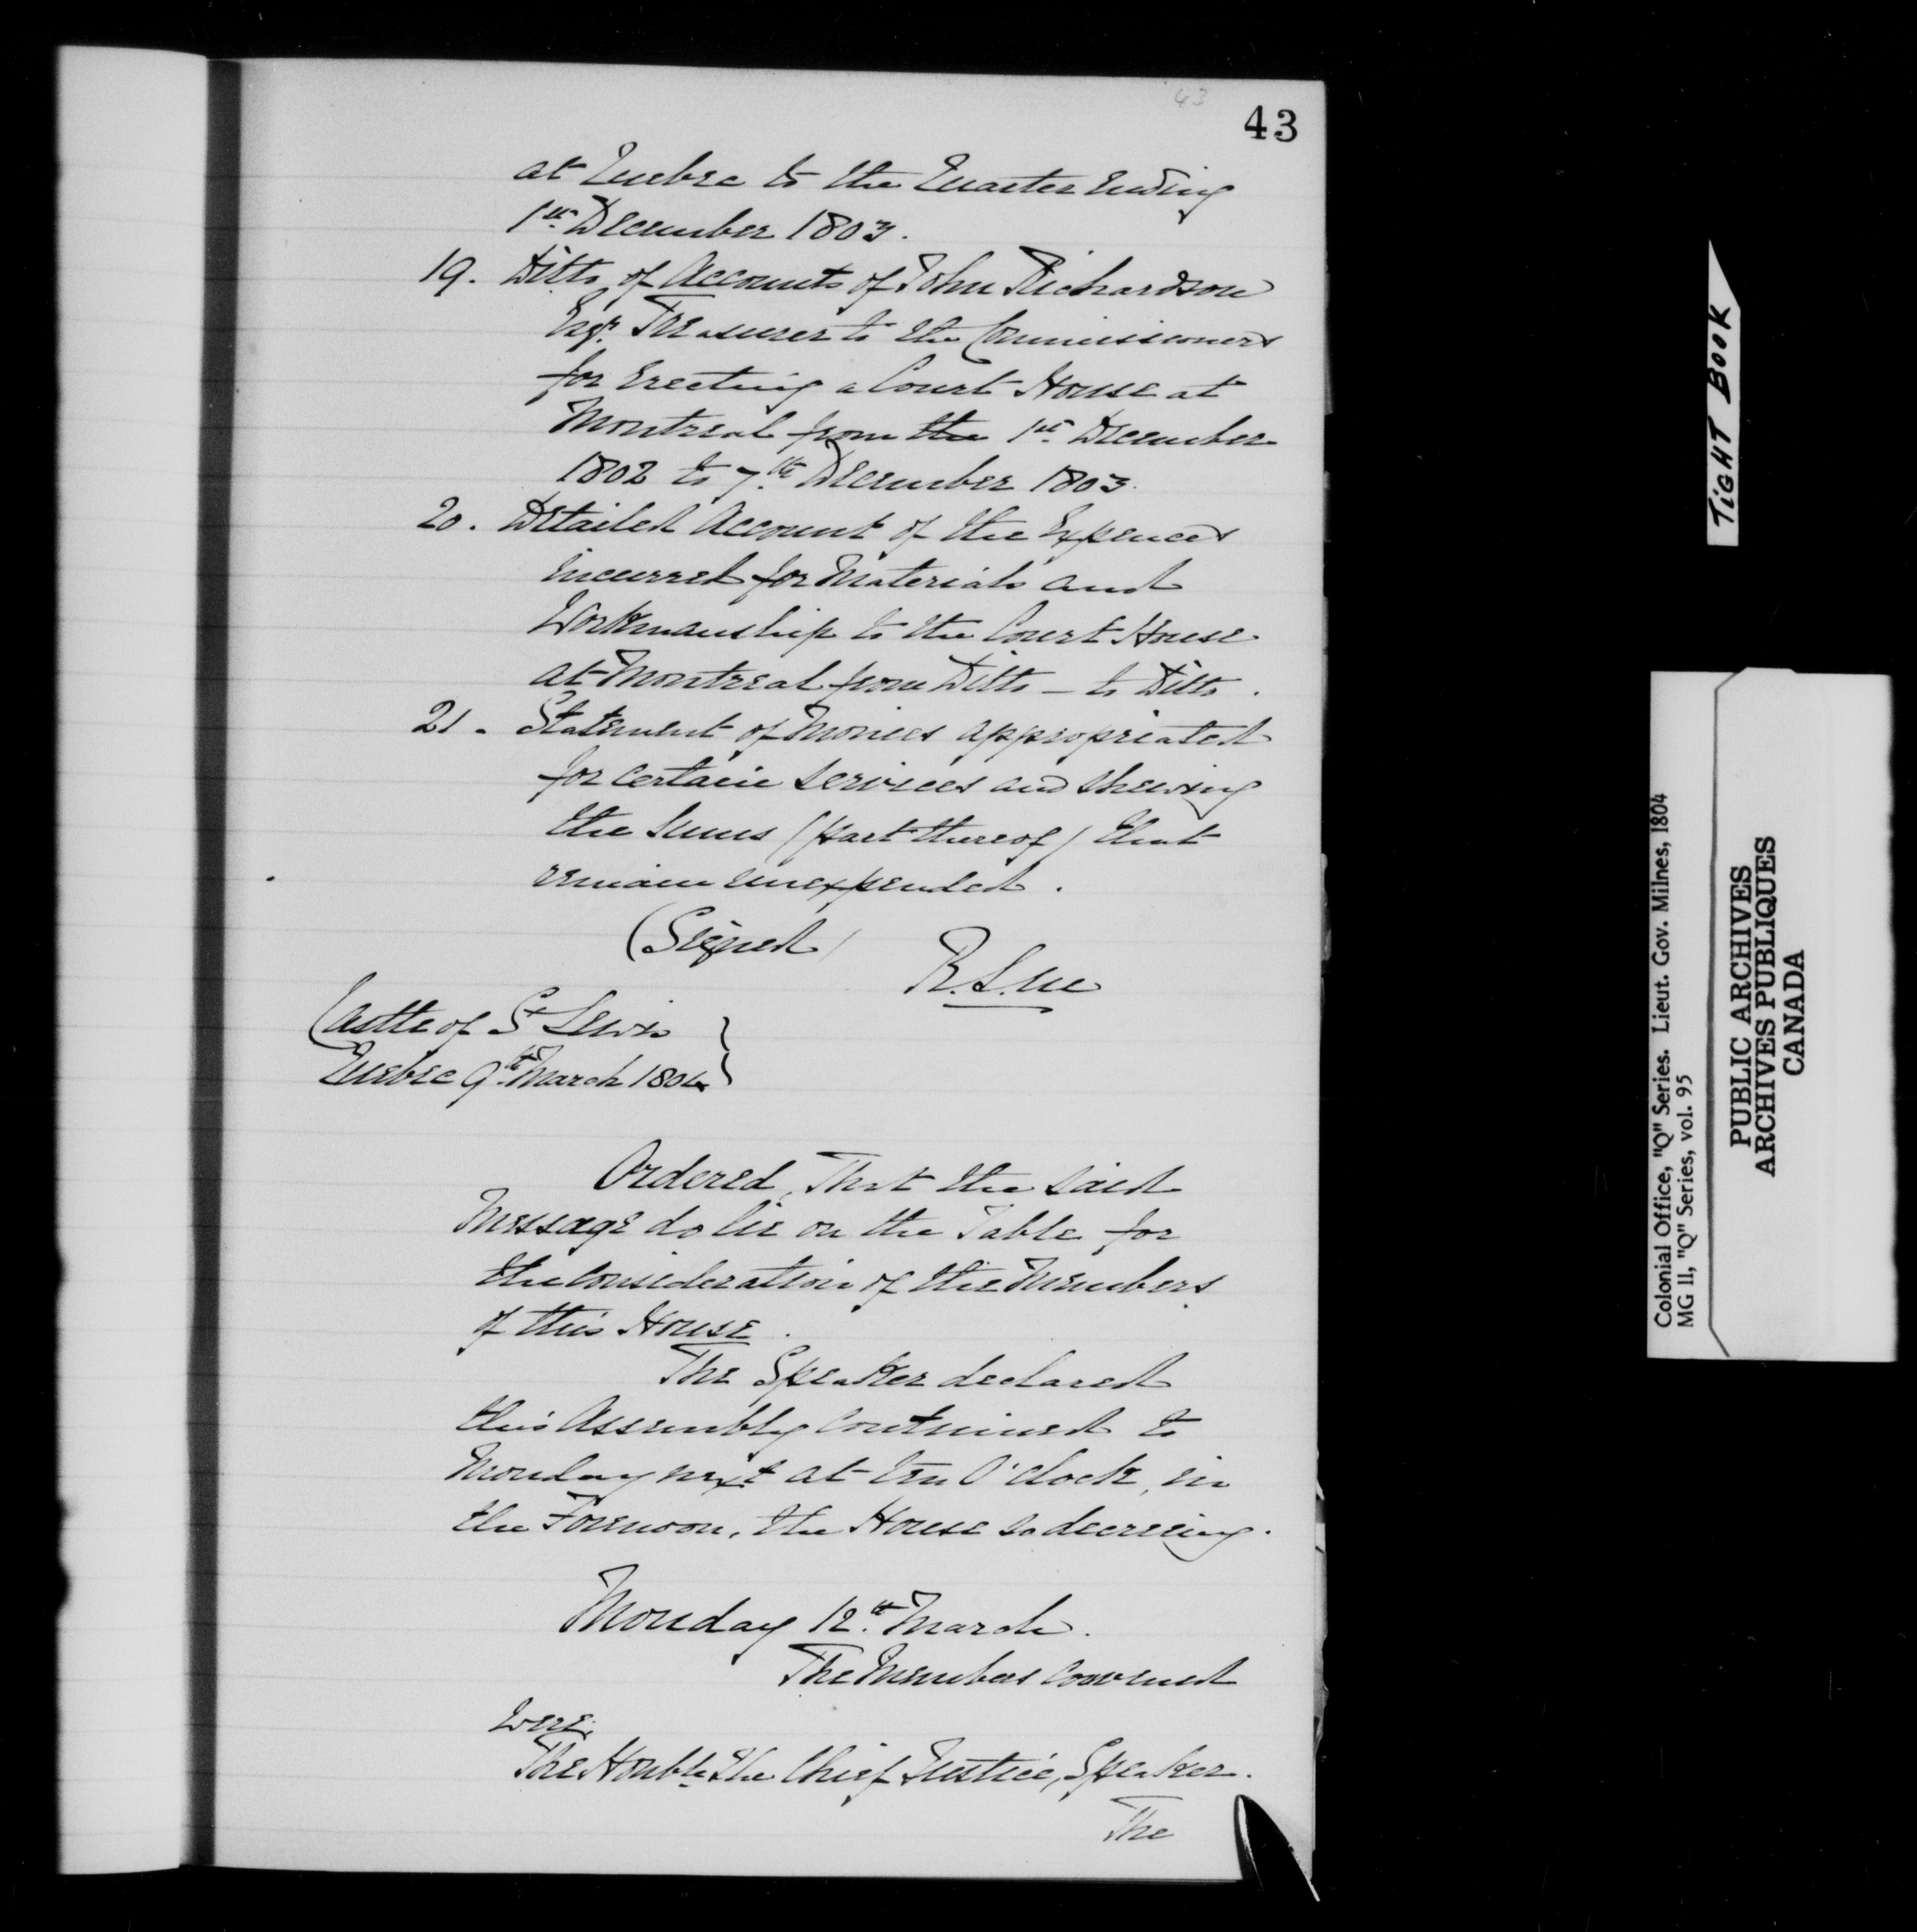 43
43
at Quebec to the Quarter Ending
1st December 1803.
19. Ditto of Accounts of John Richardson
Esqr. Treasurer to the Commissioners
for Erecting a Court House at
Montreal from the 1st December
1802 to 7th December 1803.
20. Detailed Account of the Expences
incurred for Materials and
Workmanship to the Court House
at Montreal from Ditto - to Ditto.
21. Statement of Monies appropriated
for certain services and shewing
the sums (part thereof) that
remain unexpended.
(Signed)
R. S. M
Castle of St Lewis
Quebec 9th March 1804
Ordered, That the said
Message do lie on the Table for
the consideration of the Members
of this House.
The Speaker declared
this Assembly continued to
Monday next at ten O'Clock, in
the Forenoon, the House so decreeing.
Monday 12th March.
The Members convened
were,
The Honble The Chief Justice, Speaker.
The
TIGHT BOOK
Colonial Office, "Q" Series. Lieut. Gov. Milnes, 1804
MG 11, "Q" Series, vol. 95
PUBLIC ARCHIVES
ARCHIVES PUBLIQUES
CANADA